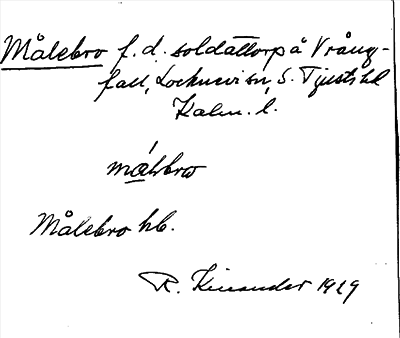 Målebro f.d. soldattorp å Vrång-
fall, Locknevi sn, S. Tjusts hd
Kalm. l.
målbrω
Målebro hb.
R. Kinander 1929